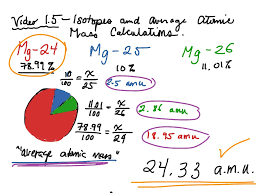 Video 1.5 - Isotopes and Average Atomic
Mass Calculations.
Mg-24 Mg-25 Mg-26
78.99% 10% 11.01%
10/100 = x/25 2.5 amu
11.01/100 = x/26 2.86 amu
78.99/100 = x/24 18.95 amu
"average atomic mass"
24.33 a.m.u.